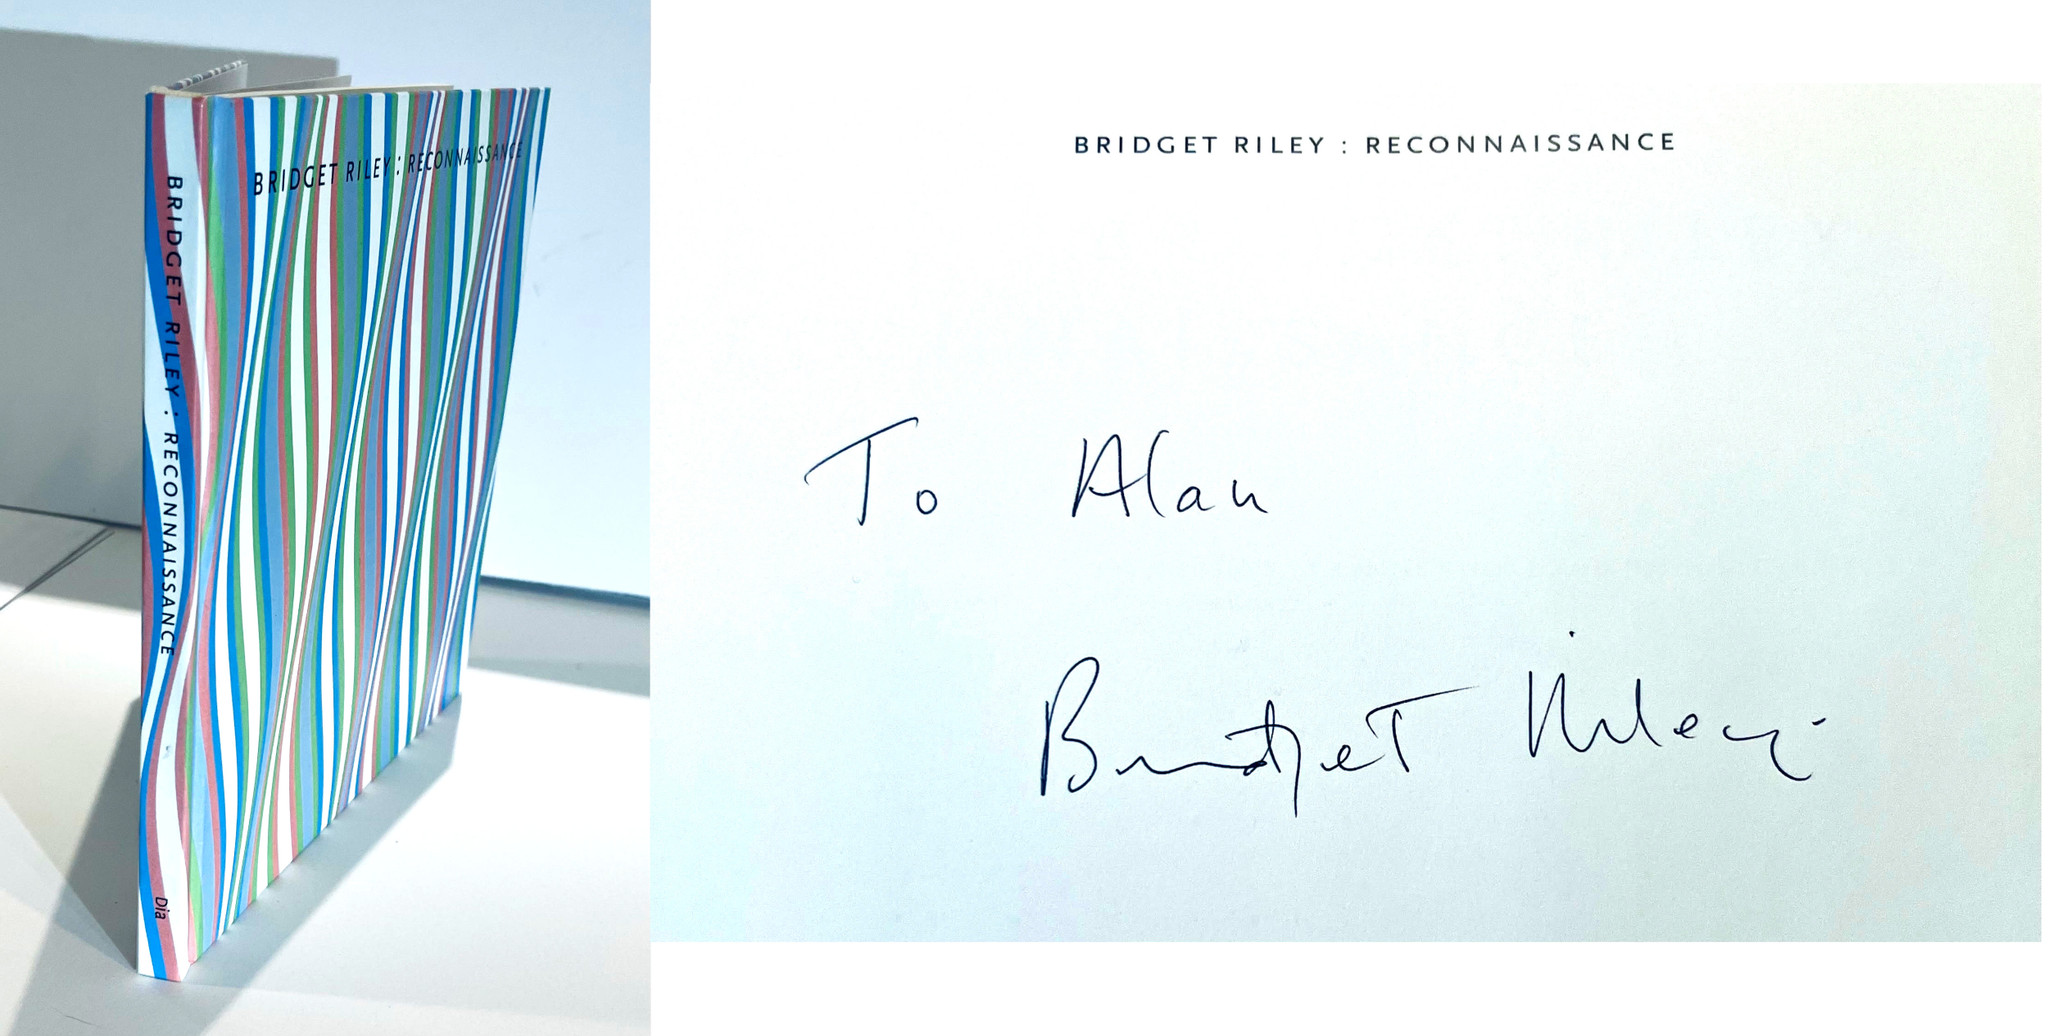 BRIDGET RILEY : RECONNAISSANCE
BRIDGET RILEY : RECONNAISSANCE
Dia
BRIDGET RILEY : RECONNAISSANCE
To Alan
Bridget Riley.